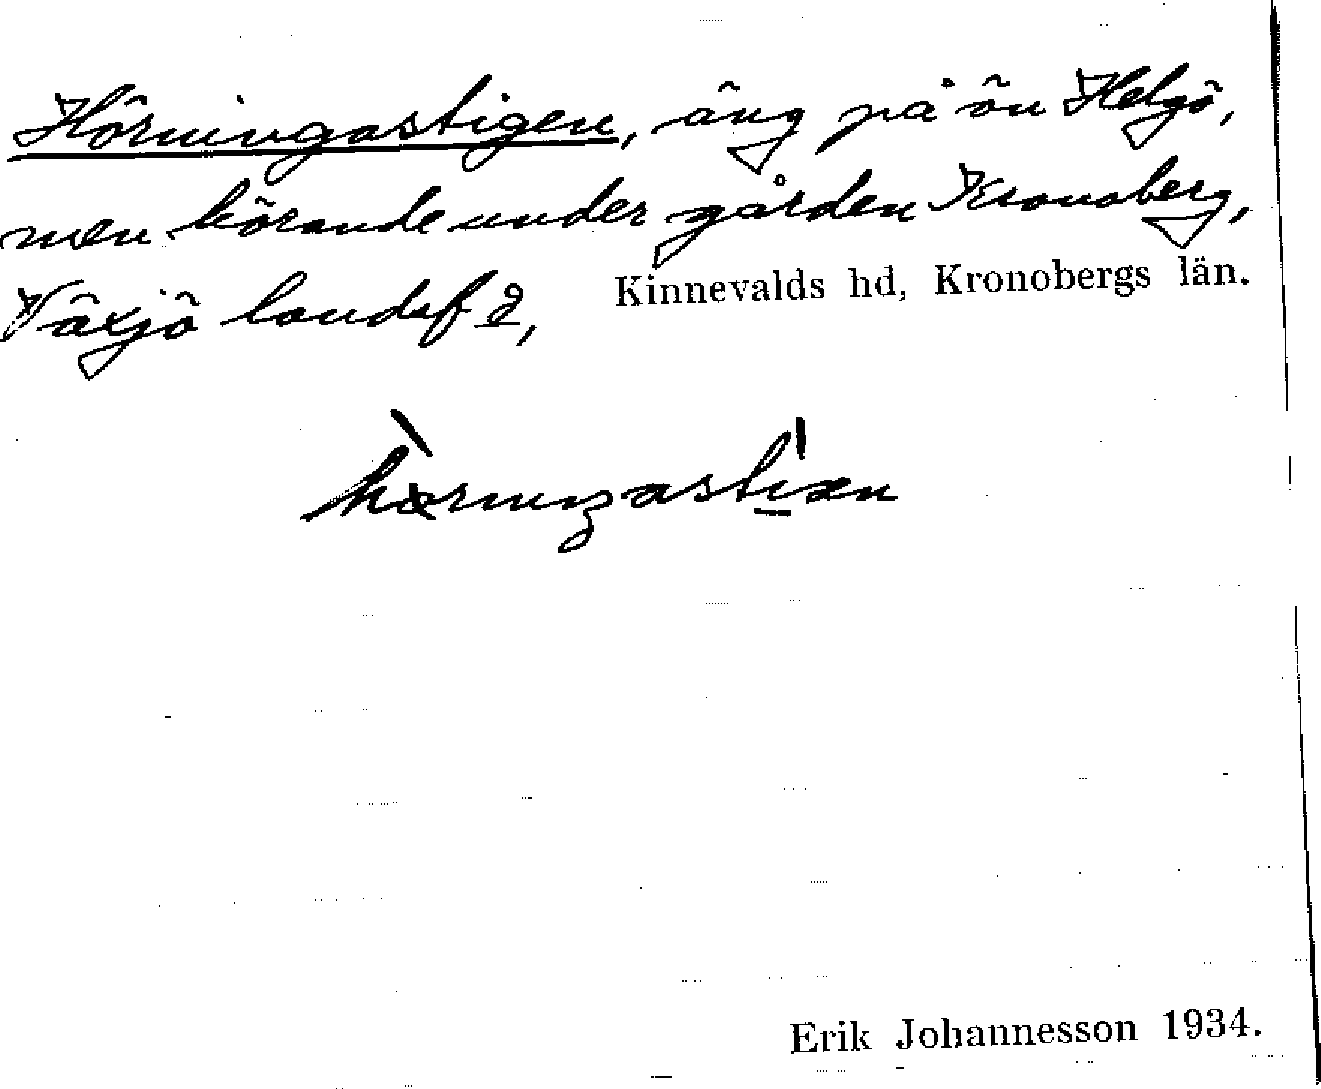 Hörningastigen, äng på ön Helgö,
men hörande under gården Kronoberg,
Växjö landsf 2, Kinnevalds hd, Kronobergs län.
Erik Johannesson 1934.